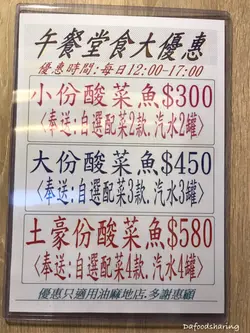 午餐堂食大優惠
優惠時間:每日12:00-17:00
小份酸菜魚$300
<奉送:自選配菜2款.汽水2罐>
大份酸菜魚$450
<奉送:自選配菜3款.汽水3罐>
土豪份酸菜魚$580
<奉送:自選配菜4款.汽水4罐>
優惠只適用油麻地店,多謝惠顧
Dafoodsharing